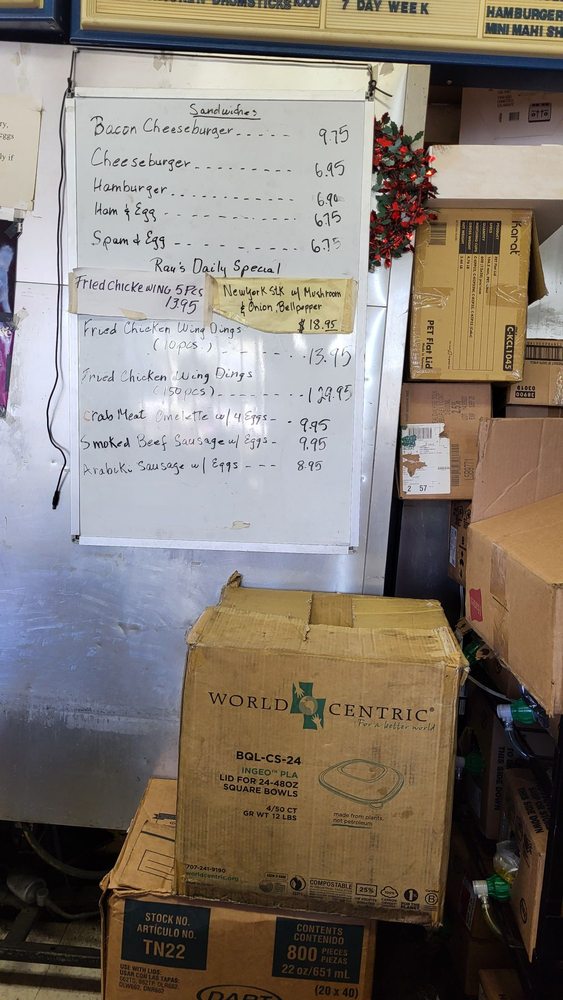 7 DAY WEEK
HAMBURGER
MINI MAHI SH
Sandwiches
Bacon Cheeseburger - - - - - - 9.75
Cheeseburger - - - - - - - - - 6.95
Hamburger - - - - - - - - - - - 6.90
Ham & Egg - - - - - - - - - - - 6.75
Spam & Egg - - - - - - - - - - - 6.75
Ray's Daily Special
Fried Chicke WING 5 Pcs
13.95
New York Stk w/ Mushroom
& Onion, Bellpepper
$18.95
Fried Chicken Wing Dings
(10 pcs.) - - - - - - - 13.95
Fried Chicken Wing Dings
(150 pcs) - - - - - - - 129.95
Crab Meat Omelette w/ 4 Eggs - - 9.95
Smoked Beef Sausage w/ Eggs - 9.95
Arabiki Sausage w/ Eggs - - - 8.95
Karat
PET Flat Lid
C-KCL1045
2 57
WORLD CENTRIC®
For a better world
BQL-CS-24
INGEO™ PLA
LID FOR 24-48OZ
SQUARE BOWLS
4/50 CT
GR WT 12 LBS
made from plants,
not petroleum
707-241-9190
worldcentric.org
COMPOSTABLE
25%
STOCK NO.
ARTÍCULO NO.
TN22
CONTENTS
CONTENIDO
800 PIECES
PIEZAS
22 oz/651 mL
(20 x 40)
USE WITH LIDS:
USAR CON LAS TAPAS:
DART
THIS SIDE DOWN